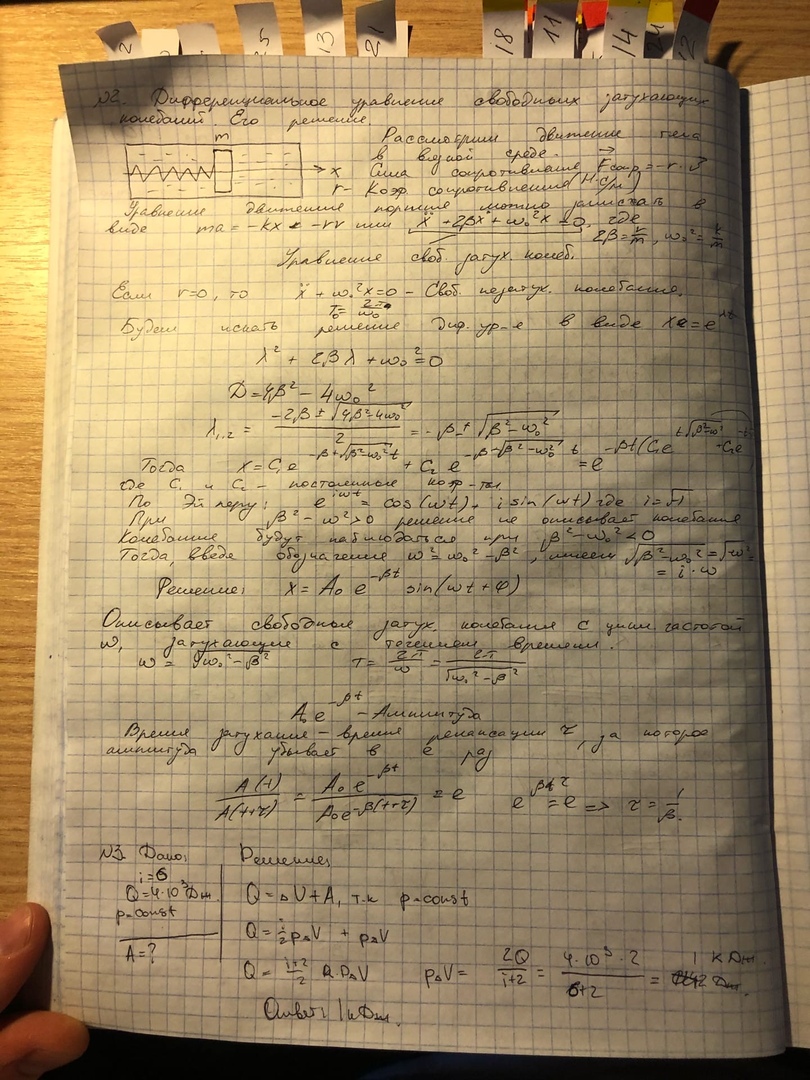 2
5
13
21
18
11
14
21
12
N2. Дифференциальное уравнение свободных затухающих
колебаний. Его решение.
m
x
Рассмотрим движение тела
в вязкой среде.
Сила сопротивления F⃗сопр = -r·V⃗
r - Коэф. сопротивления (Н·с/м)
Уравнение движения поршня можно записать в
виде ma = -kx - rv или ẍ + 2βẋ + ω₀²x = 0, где
2β = r/m, ω₀² = k/m
Уравнение своб. затух. колеб.
Если r=0, то ẍ + ω₀²x=0 - Своб. незатух. колебания.
T₀ = 2π/ω₀
Будем искать решение диф. ур-е в виде x = e^λt
λ² + 2βλ + ω₀² = 0
D = 4β² - 4ω₀²
λ₁,₂ = (-2β ± √(4β²-4ω₀²))/2 = -β ± √(β²-ω₀²)
Тогда x = C₁e^(-β+√(β²-ω₀²)t) + C₂e^(-β-√(β²-ω₀²)t) = e^-βt(C₁e^(t√(β²-ω²)) + C₂e
где C₁ и C₂ - постоянные коэф-ты
По Эйлеру: e^iωt = cos(ωt) + i sin(ωt) где i=√-1
При β² - ω²>0 решение не описывает колебания
Колебания будут наблюдаться при β²-ω₀²<0
Тогда, введя обозначение ω²=ω₀²-β², имеем √(β²-ω₀²) = √-ω² =
= i·ω
Решение: x = A₀ e^-βt sin(ωt+φ)
Описывает свободные затух. колебания с цикл. частотой
ω, затухающие с течением времени.
ω = √(ω₀²-β²) T = 2π/ω = 2π/√(ω₀²-β²)
A₀e^-βt - Амплитуда
Время затухания - время релаксации τ, за которое
амплитуда убывает в e раз
A(t)/A(t+τ) = A₀e^-βt/A₀e^-β(t+τ) = e e^βτ = e => τ = 1/β.
N3. Дано:
i=6
Q=4·10³ Дж.
p=const
A=?
Решение:
Q = ΔU+A, т.к p=const
Q = i/2 pΔV + pΔV
Q = (i+2)/2 · pΔV pΔV = 2Q/(i+2) = 4·10³·2/(6+2) = 1 кДж.
Ответ: 1 кДж.